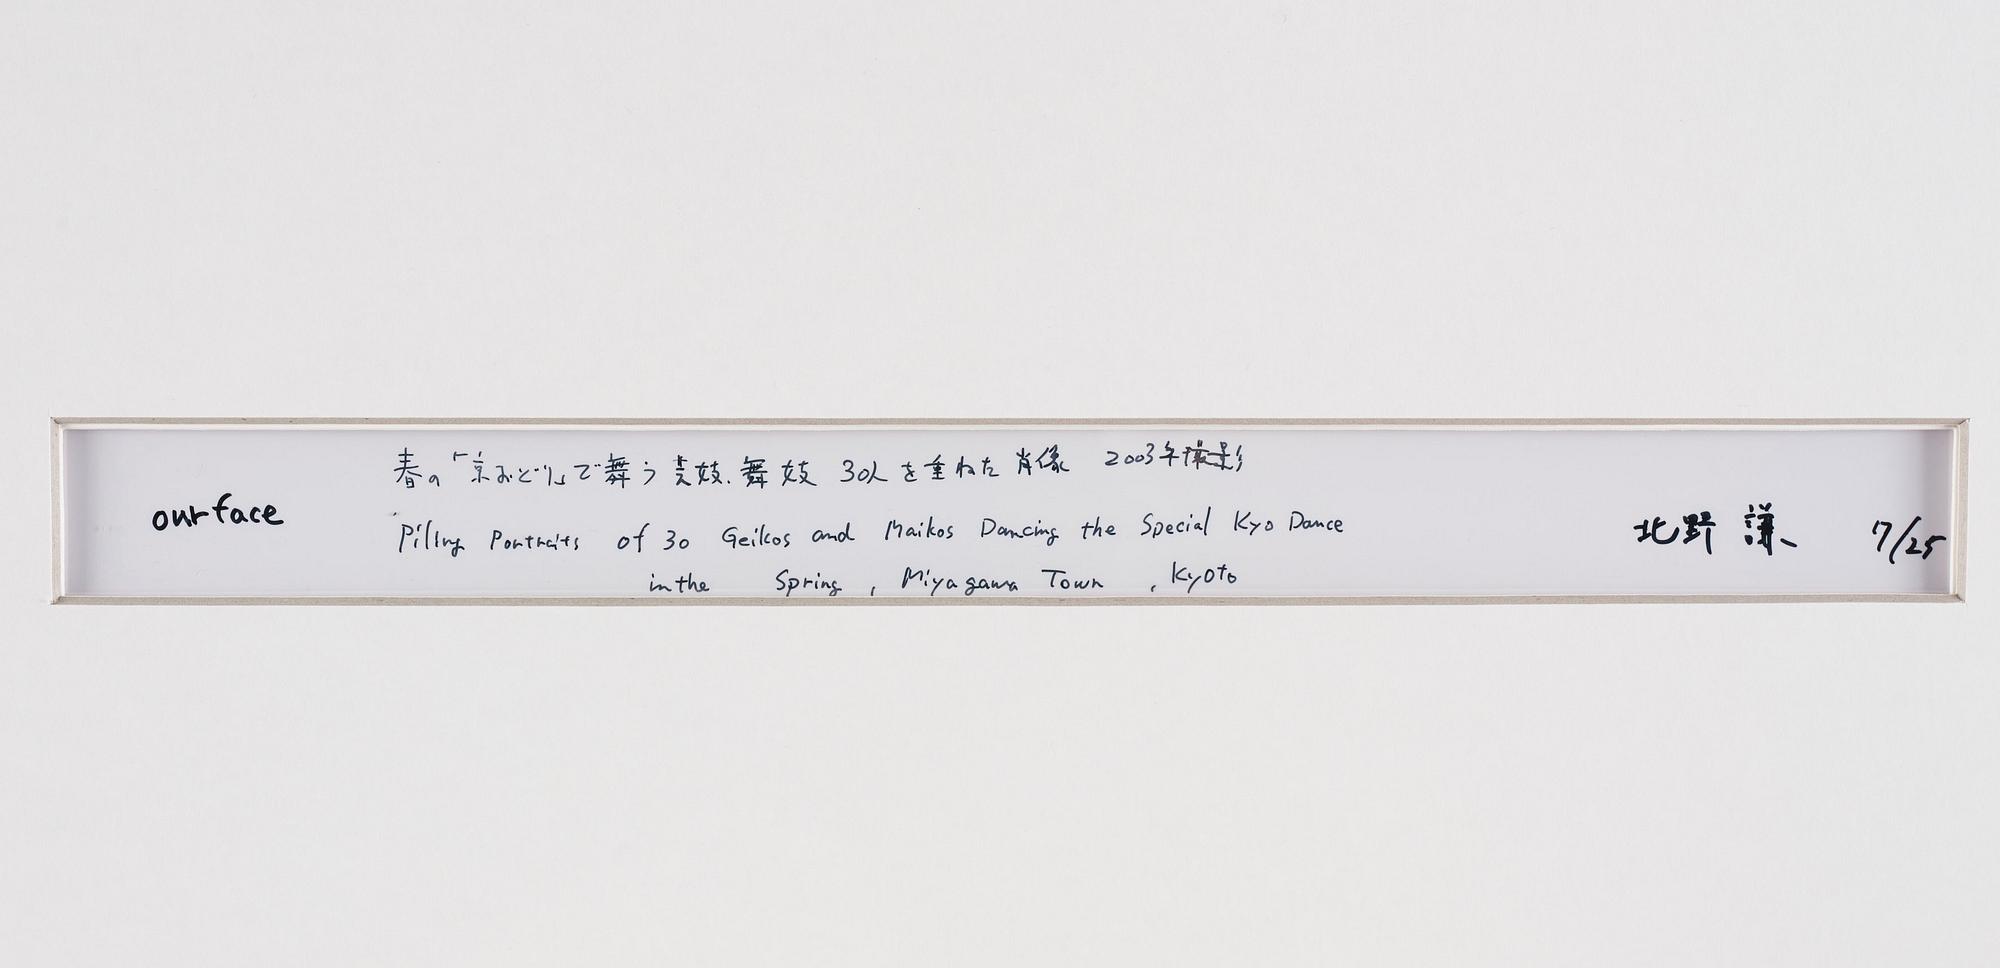 our face
春の「京おどり」で舞う芸妓、舞妓 30人を重ねた肖像 2003年撮影
Piling Portraits of 30 Geikos and Maikos Dancing the Special Kyo Dance
in the Spring, Miyagawa Town, Kyoto
北野 謙 7/25